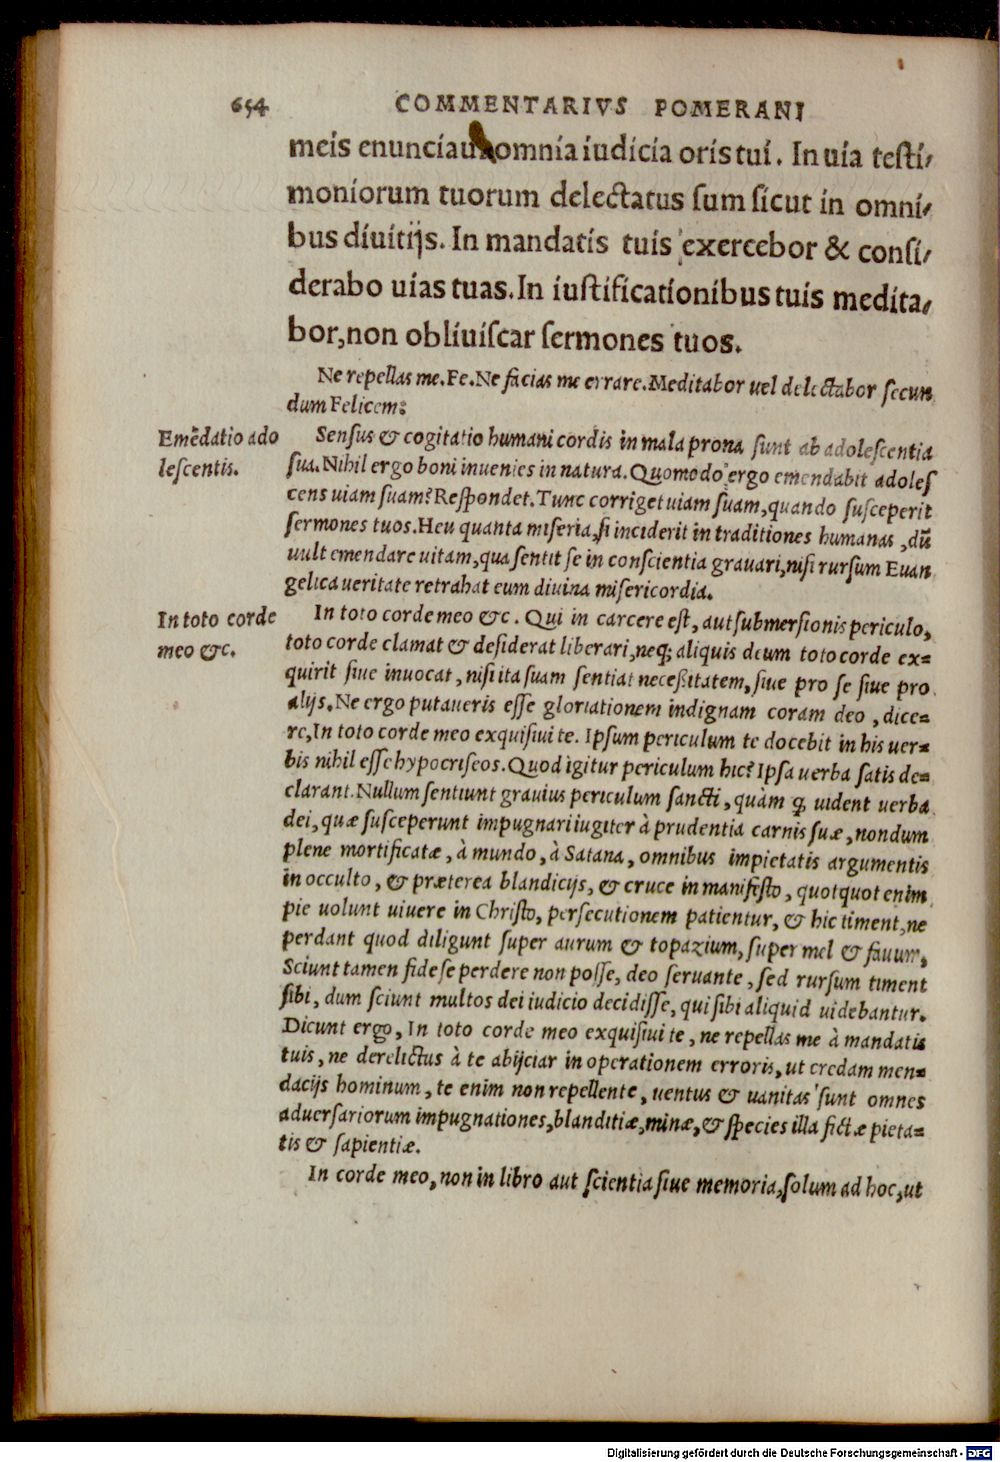 654 COMMENTARIVS POMERANI
meis enunciaui omnia iudicia oris tui. In uia testi⸗
moniorum tuorum delectatus sum sicut in omni⸗
bus diuitijs. In mandatis tuis exercebor & consi⸗
derabo uias tuas. In iustificationibus tuis medita⸗
bor, non obliuiscar sermones tuos.
Ne repellas me. Fe. Ne facias me errare. Meditabor uel delectabor secun
dum Felicem:
Emēdatio ado
lescentis.
Sensus & cogitatio humani cordis in mala prona sunt ab adolescentia
sua. Nihil ergo boni inuenies in natura. Quomodo ergo emendabit adoles
cens uiam suam? Respondet. Tunc corriget uiam suam, quando susceperit
sermones tuos. Heu quanta miseria, si inciderit in traditiones humanas, dū
uult emendare uitam, qua sentit se in conscientia grauari, nisi rursum Euan
gelica ueritate retrahat eum diuina misericordia.
In toto corde
meo &c.
In toto corde meo &c. Qui in carcere est, aut submersionis periculo,
toto corde clamat & desiderat liberari, neq; aliquis deum toto corde ex⸗
quirit siue inuocat, nisi ita suam sentiat necessitatem, siue pro se siue pro
alijs. Ne ergo putaueris esse gloriationem indignam coram deo, dice⸗
re, In toto corde meo exquisiui te. Ipsum periculum te docebit in his uer⸗
bis nihil esse hypocriseos. Quod igitur periculum hic? Ipsa uerba satis de⸗
clarant. Nullum sentiunt grauius periculum sancti, quàm ꝙ uident uerba
dei, quæ susceperunt impugnari iugiter à prudentia carnis suæ, nondum
plene mortificatæ, à mundo, à Satana, omnibus impietatis argumentis
in occulto, & præterea blandicijs, & cruce in manifesto, quotquot enim
pie uolunt uiuere in Christo, persecutionem patientur, & hic timent, ne
perdant quod diligunt super aurum & topazium, super mel & fauum.
Sciunt tamen fide se perdere non posse, deo seruante, sed rursum timent
sibi, dum sciunt multos dei iudicio decidisse, qui sibi aliquid uidebantur.
Dicunt ergo, In toto corde meo exquisiui te, ne repellas me à mandatis
tuis, ne derelictus à te abijciar in operationem erroris, ut credam men⸗
dacijs hominum, te enim non repellente, uentus & uanitas sunt omnes
aduersariorum impugnationes, blanditiæ, minæ, & species illa fictæ pieta⸗
tis & sapientiæ.
In corde meo, non in libro aut scientia siue memoria, solum ad hoc, ut
Digitalisierung gefördert durch die Deutsche Forschungsgemeinschaft - DFG